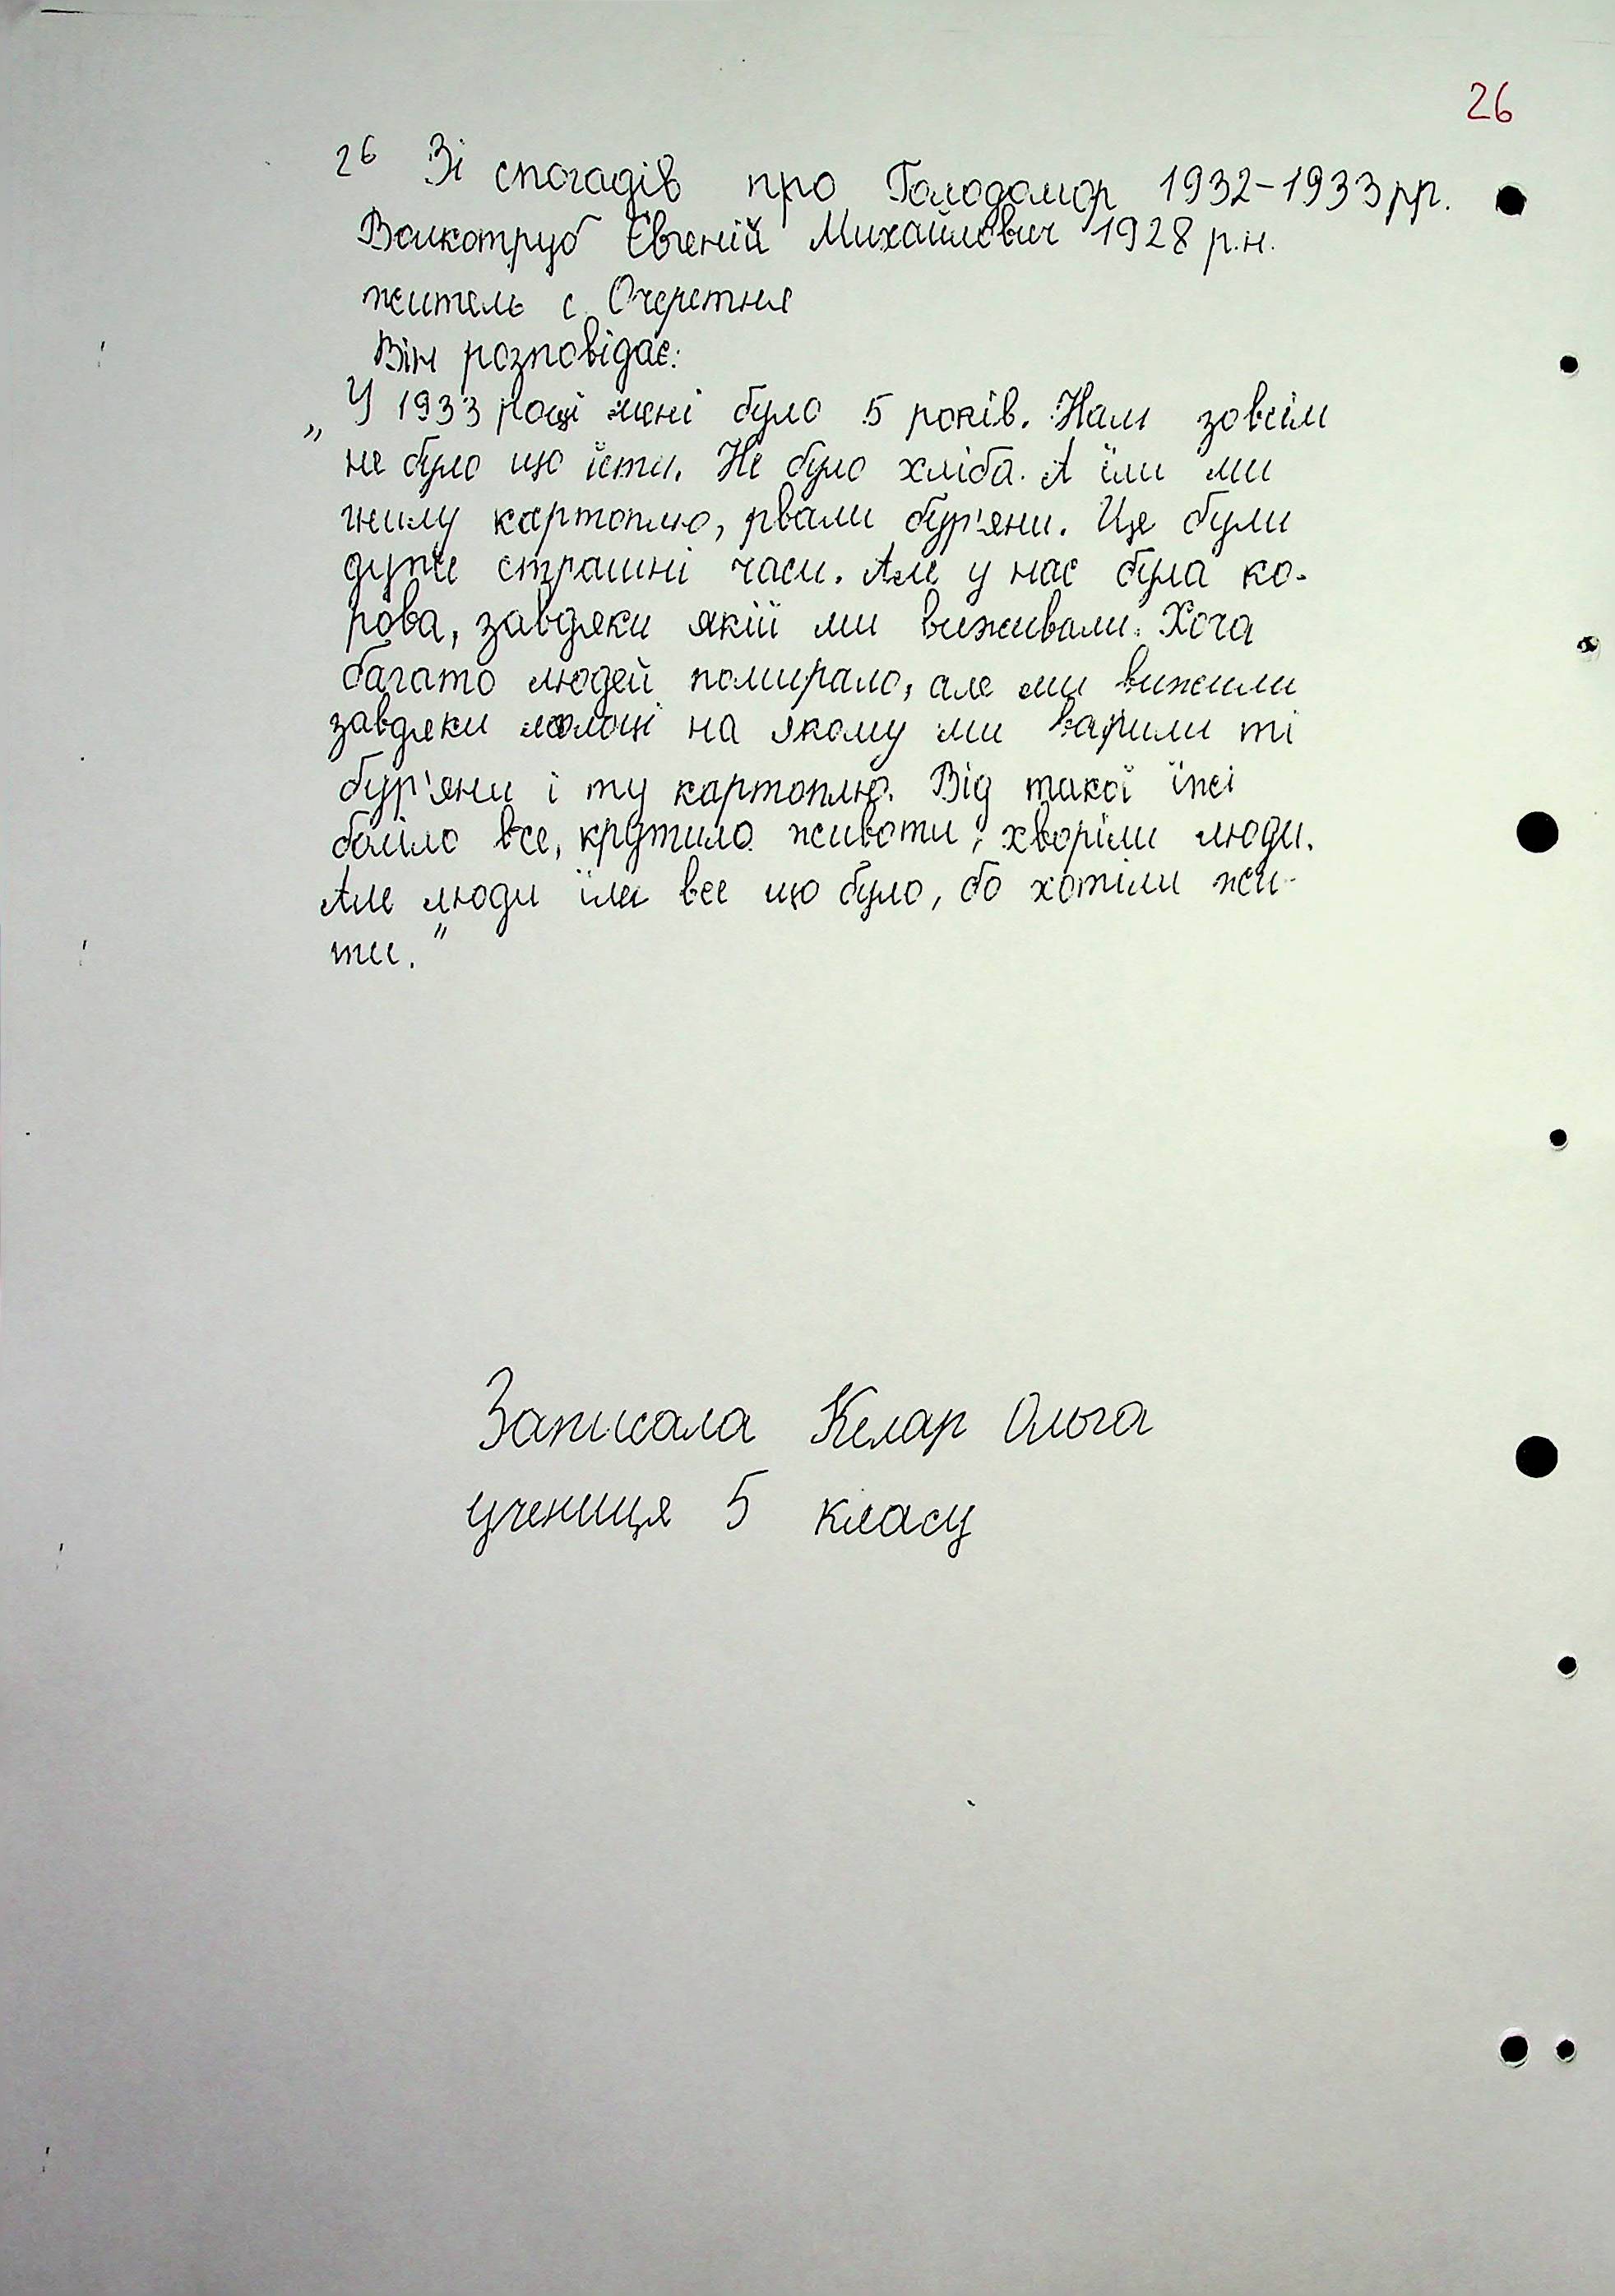 26
26 Зі спогадів про Голодомор 1932-1933 рр.
Волкотруб Євгеній Михайлович 1928 р.н.
житель с. Очеретня
Він розповідає:
„У 1933 році мені було 5 років. Нам зовсім
не було що їсти. Не було хліба. А їли ми
гнилу картоплю, рвали бур'яни. Це були
дуже страшні часи. Але у нас була ко-
рова, завдяки якій ми виживали. Хоча
багато людей помирало, але ми вижили
завдяки молоці на якому ми варили ті
бур'яни і ту картоплю. Від такої їжі
боліло все, крутило животи, хворіли люди.
Але люди їли все що було, бо хотіли жи-
ти."
Записала Келар Ольга
учениця 5 класу